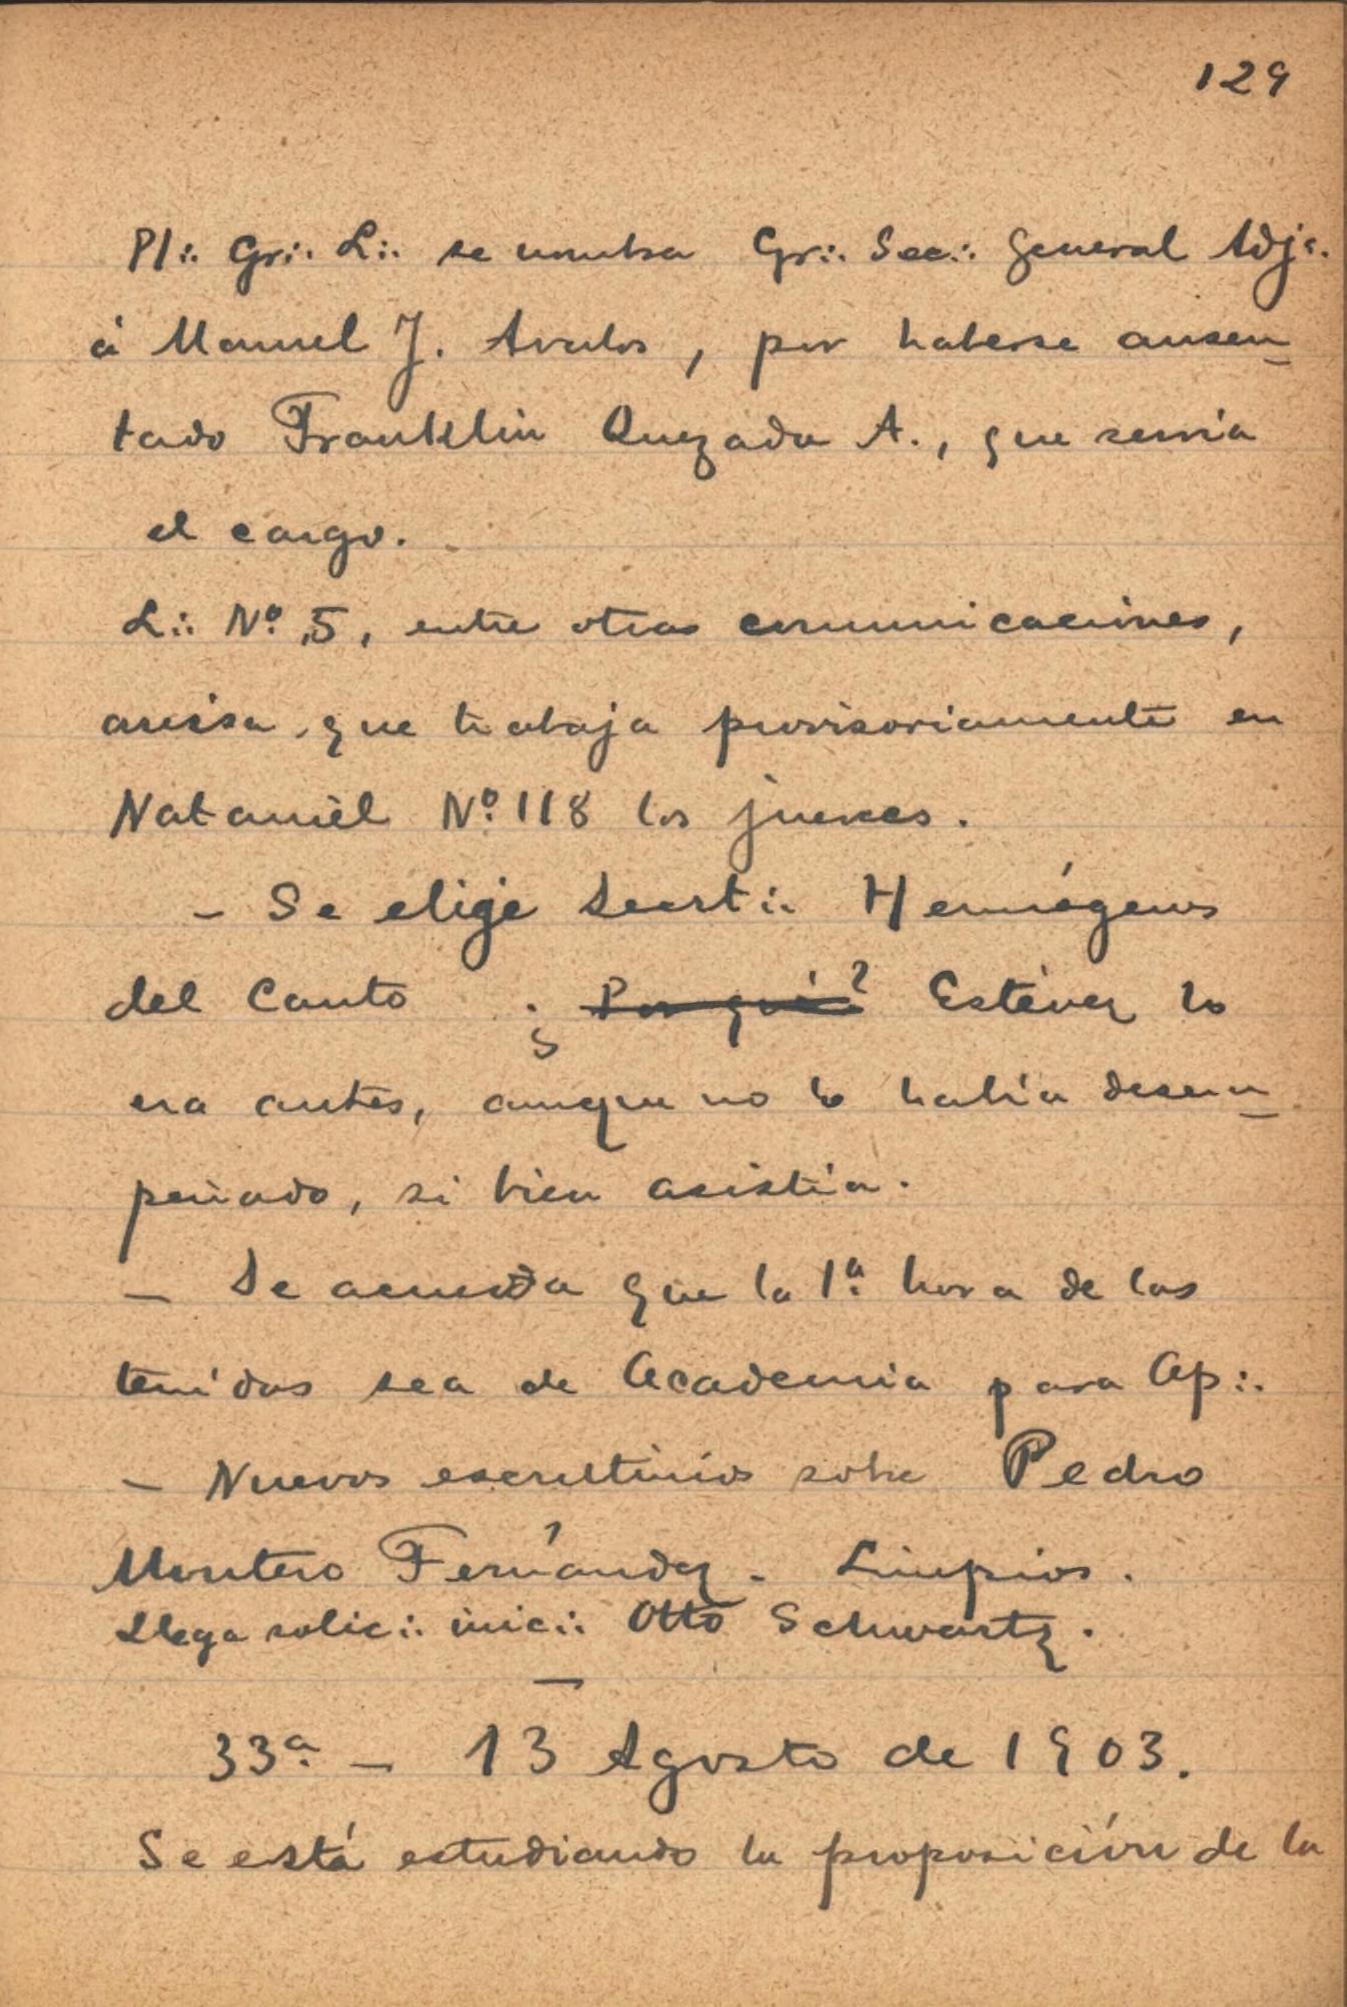 129
Pl∴ Gr∴ L∴ se nombra Gr∴ Sec∴ General Adj∴
á Manuel J. Avalos, por haberse ausen-
tado Franklin Quezada A., que servía
el cargo.
L∴ Nº 5, entre otras comunicaciones,
avisa que trabaja provisoriamente en
Nataniel Nº 118 los jueves.
- Se elige Secret∴ Hermógenes
del Canto ¿Por qué? Estévez lo
era antes, aunque no lo había desem-
peñado, si bien asistía.
- Se acuerda que la 1ª hora de las
tenidas sea de Academia para Ap∴
- Nuevos escrutinios sobre Pedro
Montero Fernández. Limpios.
Llega solic∴ inic∴ Otto Schwartz.
33ª - 13 Agosto de 1903.
Se está estudiando la proposición de la